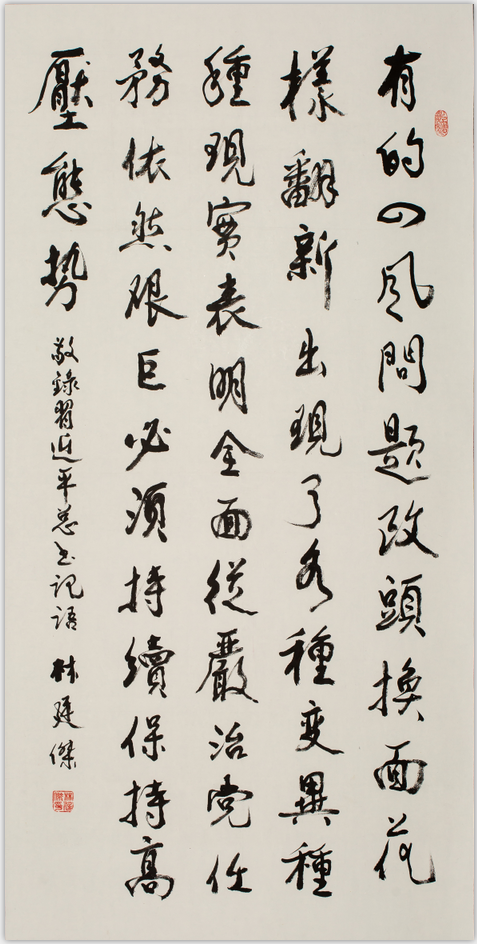 有的四风問題改頭換面花
樣翻新出現了各種变異種
種現實表明全面從嚴治党任
務依然艰巨必須持續保持高
壓態势 敬錄習近平总书记语 林廷傑